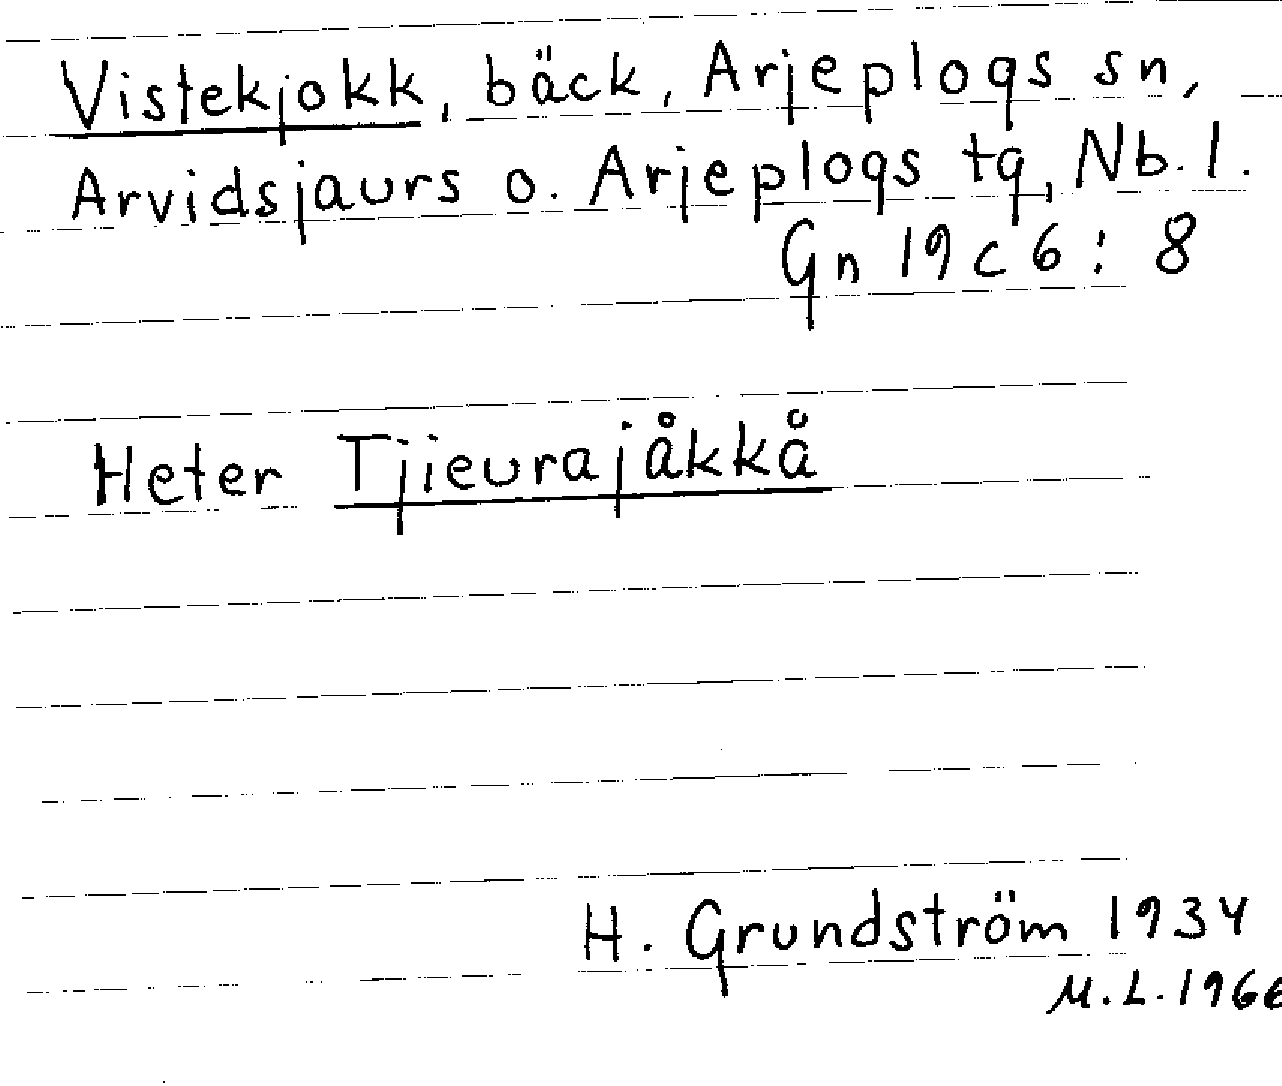 Vistekjokk, bäck, Arjeplogs sn,
Arvidsjaurs o. Arjeplogs tg, Nb. l.
Gn 19 c 6 : 8
Heter Tjieurajåkkå
H. Grundström 1934
M.L. 1966